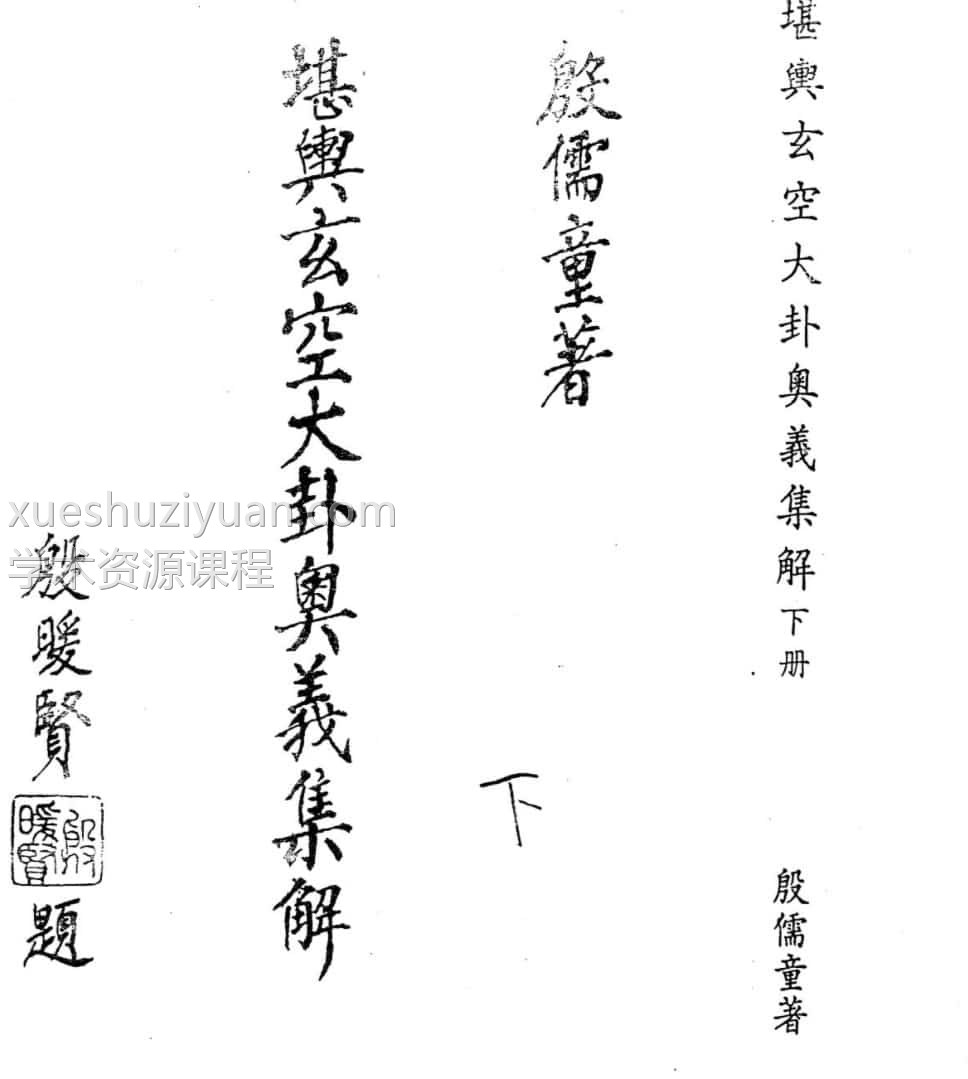 堪輿玄空大卦奥義集解下册
殷儒童著
殷儒童著
下
堪輿玄空大卦奥義集解
xueshuziyuan.com
学术资源课程
殷暖賢
殷暖賢
題